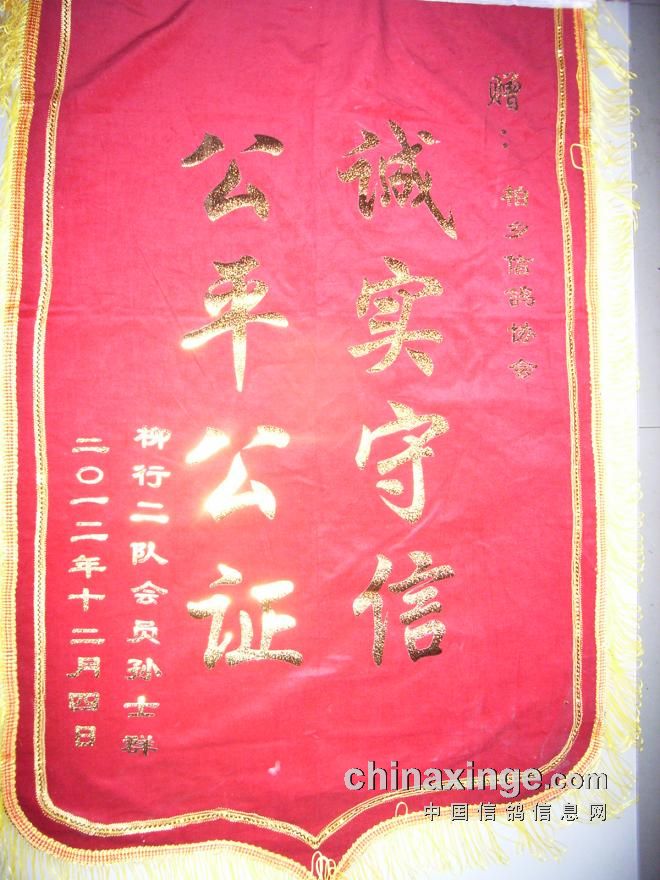 赠：柏乡信鸽协会
诚实守信
公平公证
柳行二队会员孙士群
二〇一二年十二月四日
chinaxinge.com
中国信鸽信息网